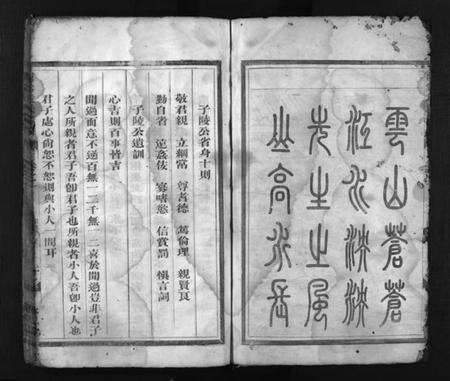 雲山蒼蒼
江水泱泱
先生之風
山高水長
子陵公省身十則
敬君親 立綱常 尊耆德 篤倫理 親賢良
勤自省 遠奸佞 寡嗜慾 信賞罰 愼言詞
子陵公遺訓
心吉則百事皆吉
聞過而意不逆百無一二千無一二喜於聞過豈非君子
之人所親者君子吾卽君子也所親者小人吾卽小人也
君子處心尙恕不恕則與小人一間耳